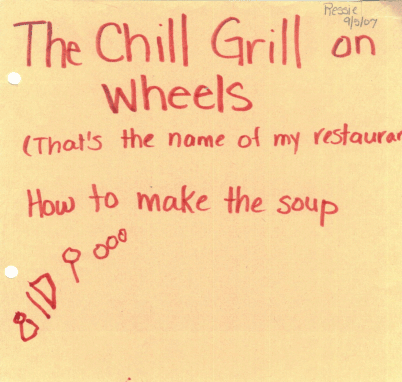 Ressie
9/5/07
The Chill Grill on
Wheels
(That's the name of my restauran
How to make the soup